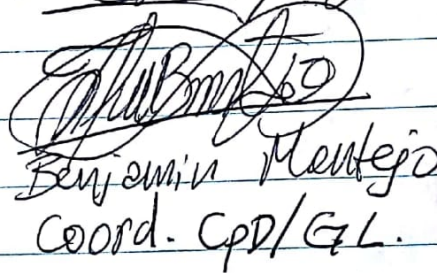 Benjamin Montejo
Coord. CpD/GL.